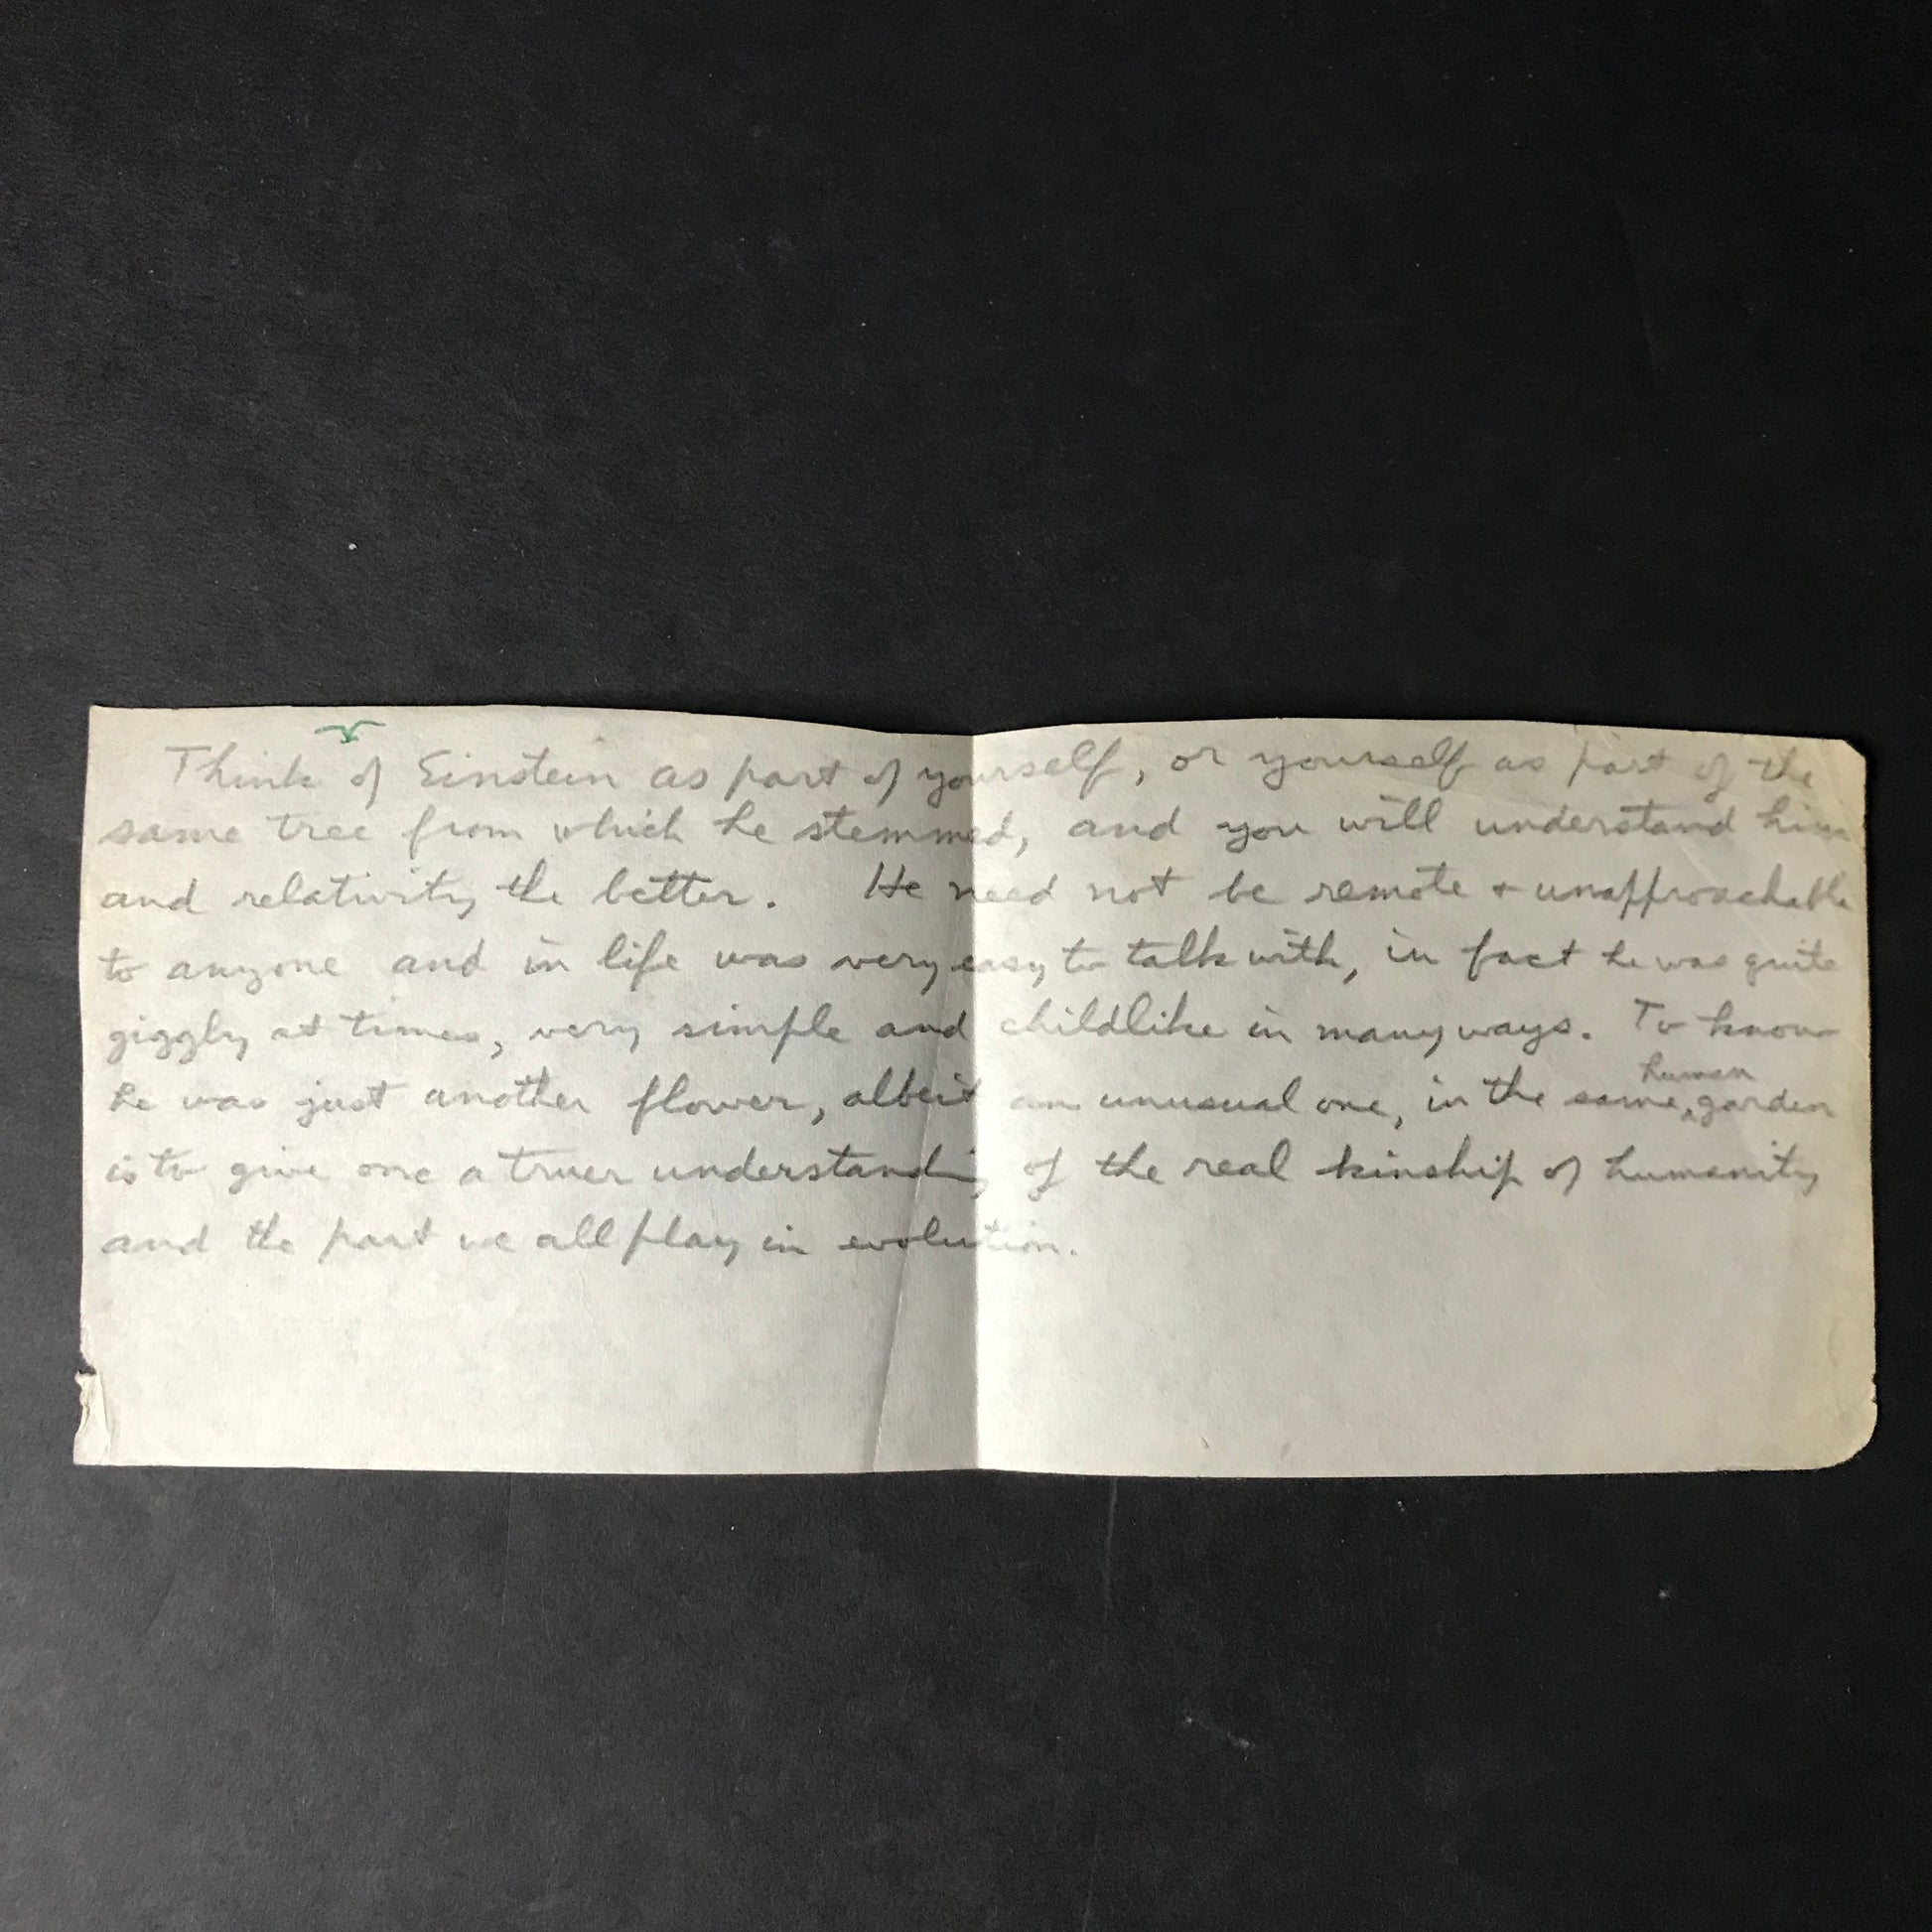 Think of Einstein as part of yourself, or yourself as part of the
same tree from which he stemmed, and you will understand him
and relativity the better. He need not be remote + unapproachable
to anyone and in life was very easy to talk with, in fact he was quite
giggly at times, very simple and childlike in many ways. To know
he was just another flower, albeit an unusual one, in the same human garden
is to give one a truer understanding of the real kinship of humanity
and the part we all play in evolution.